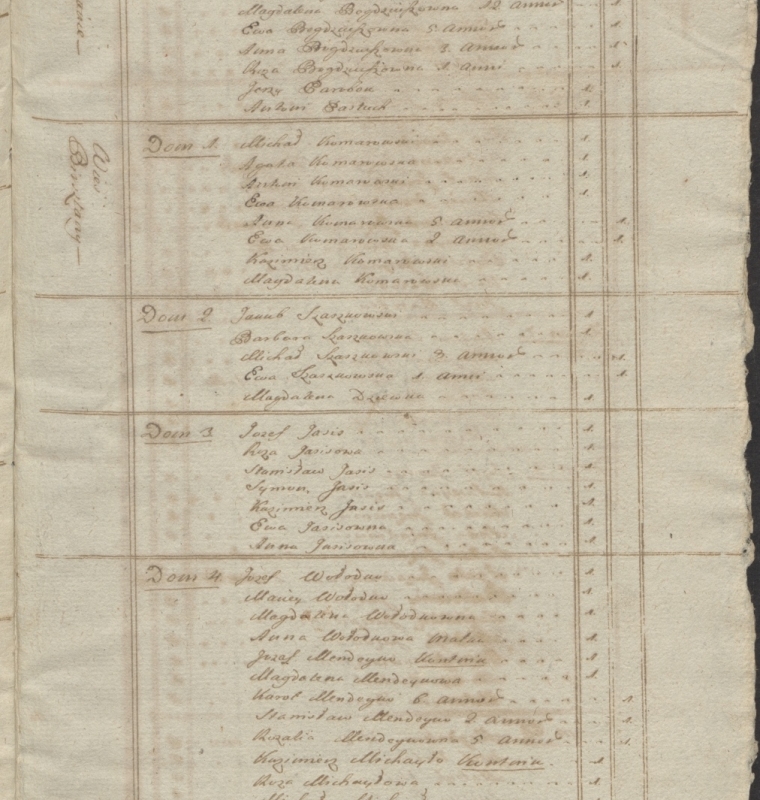 Magdalena Bogdziukowna 12 Annor 1
Ewa Bogdziukowna 5 Annor 1
Anna Bogdziukowna 3 Annor 1
Roza Bogdziukowna 1 Anni 1
Jerzy 1
Antoni Pastuch 1
Wies
Dom 1. Michał Komarowski 1
Agata Komarowska 1
Antoni Komarowski 1
Ewa Komarowska 1
Anna Komarowska 5 Annor 1
Ewa Komarowska 2 Annor 1
Kazimierz Komarowski 1
Magdalena Komarowska 1
Dom 2 Jakub Szaszkowski 1
Barbara Szaszkowska 1
Michał Szaszkowski 3 Annor 1
Ewa Szaszkowska 1 Anni 1
Magdalena Dziewka 1
Dom 3 Jozef Jasis 1
Roza Jasisowa 1
Stanisław Jasis 1
Symon Jasis 1
Kazimierz Jasis 1
Ewa Jasisowna 1
Anna Jasisowna 1
Dom 4 Jozef Wołodko 1
Maciey Wołodko 1
Magdalena Wołodkowna 1
Anna Wołodkowa Matka 1
Jozef Mendeyko Kątnik 1
Magdalena Mendeykowa 1
Karol Mendeyko 6 Annor 1
Stanisław Mendeyko 2 Annor 1
Rozalia Mendeykowna 5 Annor 1
Kazimierz Michayło 1
Roza Michayłowa 1